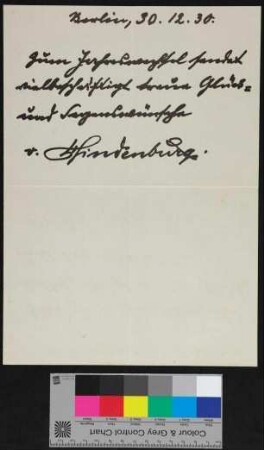 Berlin, 30.12.30.
Zum Jahreswechsel sendet
vielbeschäftigt treue Glück-
und Segenswünsche
v. Hindenburg.
Colour & Grey Control Chart